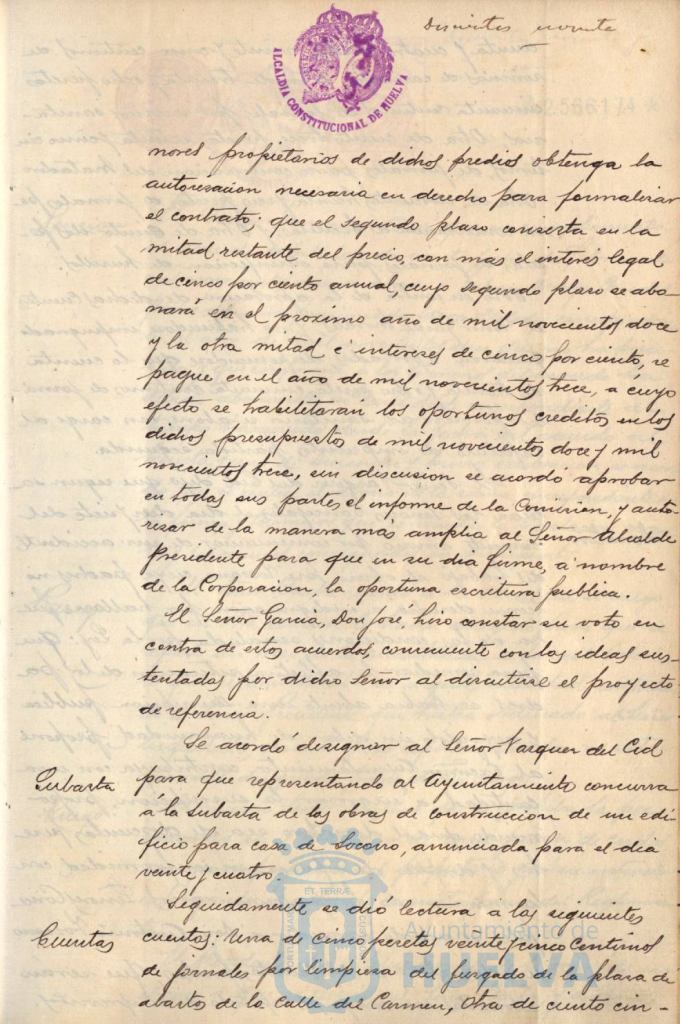 Doscientos noventa
ALCALDIA CONSTITUCIONAL DE HUELVA
nores propietarios de dichos predios obtenga la
autorisacion necesaria en derecho para formalizar
el contrato; que el segundo plaso consista en la
mitad restante del precio, con más el interés legal
de cinco por ciento anual, cuyo segundo plaso se abo-
nará en el proximo año de mil novecientos doce
y la otra mitad é intereses de cinco por ciento, se
pague en el año de mil novecientos trece, á cuyo
efecto se habilitarán los oportunos creditos en los
dichos presupuestos de mil novecientos doce y mil
novecientos trece, sin discusion se acordó aprobar
en todas sus partes el informe de la Comision, y auto-
risar de la manera más amplia al Señor Alcalde
Presidente para que en su dia firme, á nombre
de la Corporacion, la oportuna escritura publica.
El Señor Garcia, Don José, hiso constar su voto en
contra de estos acuerdos, consecuente con las ideas sus-
tentadas por dicho Señor al discutirse el proyecto
de referencia.
Se acordó designar al Señor Vasquez del Cid
Subasta para que representando al Ayuntamiento concurra
á la subasta de las obras de construccion de un edi-
ficio para casa de Socorro, anunciada para el dia
veinte y cuatro.
Seguidamente se dió lectura a las siguientes
Cuentas cuentas: Una de cinco pesetas veinte y cinco centimos
de jornales por limpiesa del jusgado de la plasa de
abastos de la calle del Carmen, Otra de ciento cin-
Ayuntamiento de
HUELVA